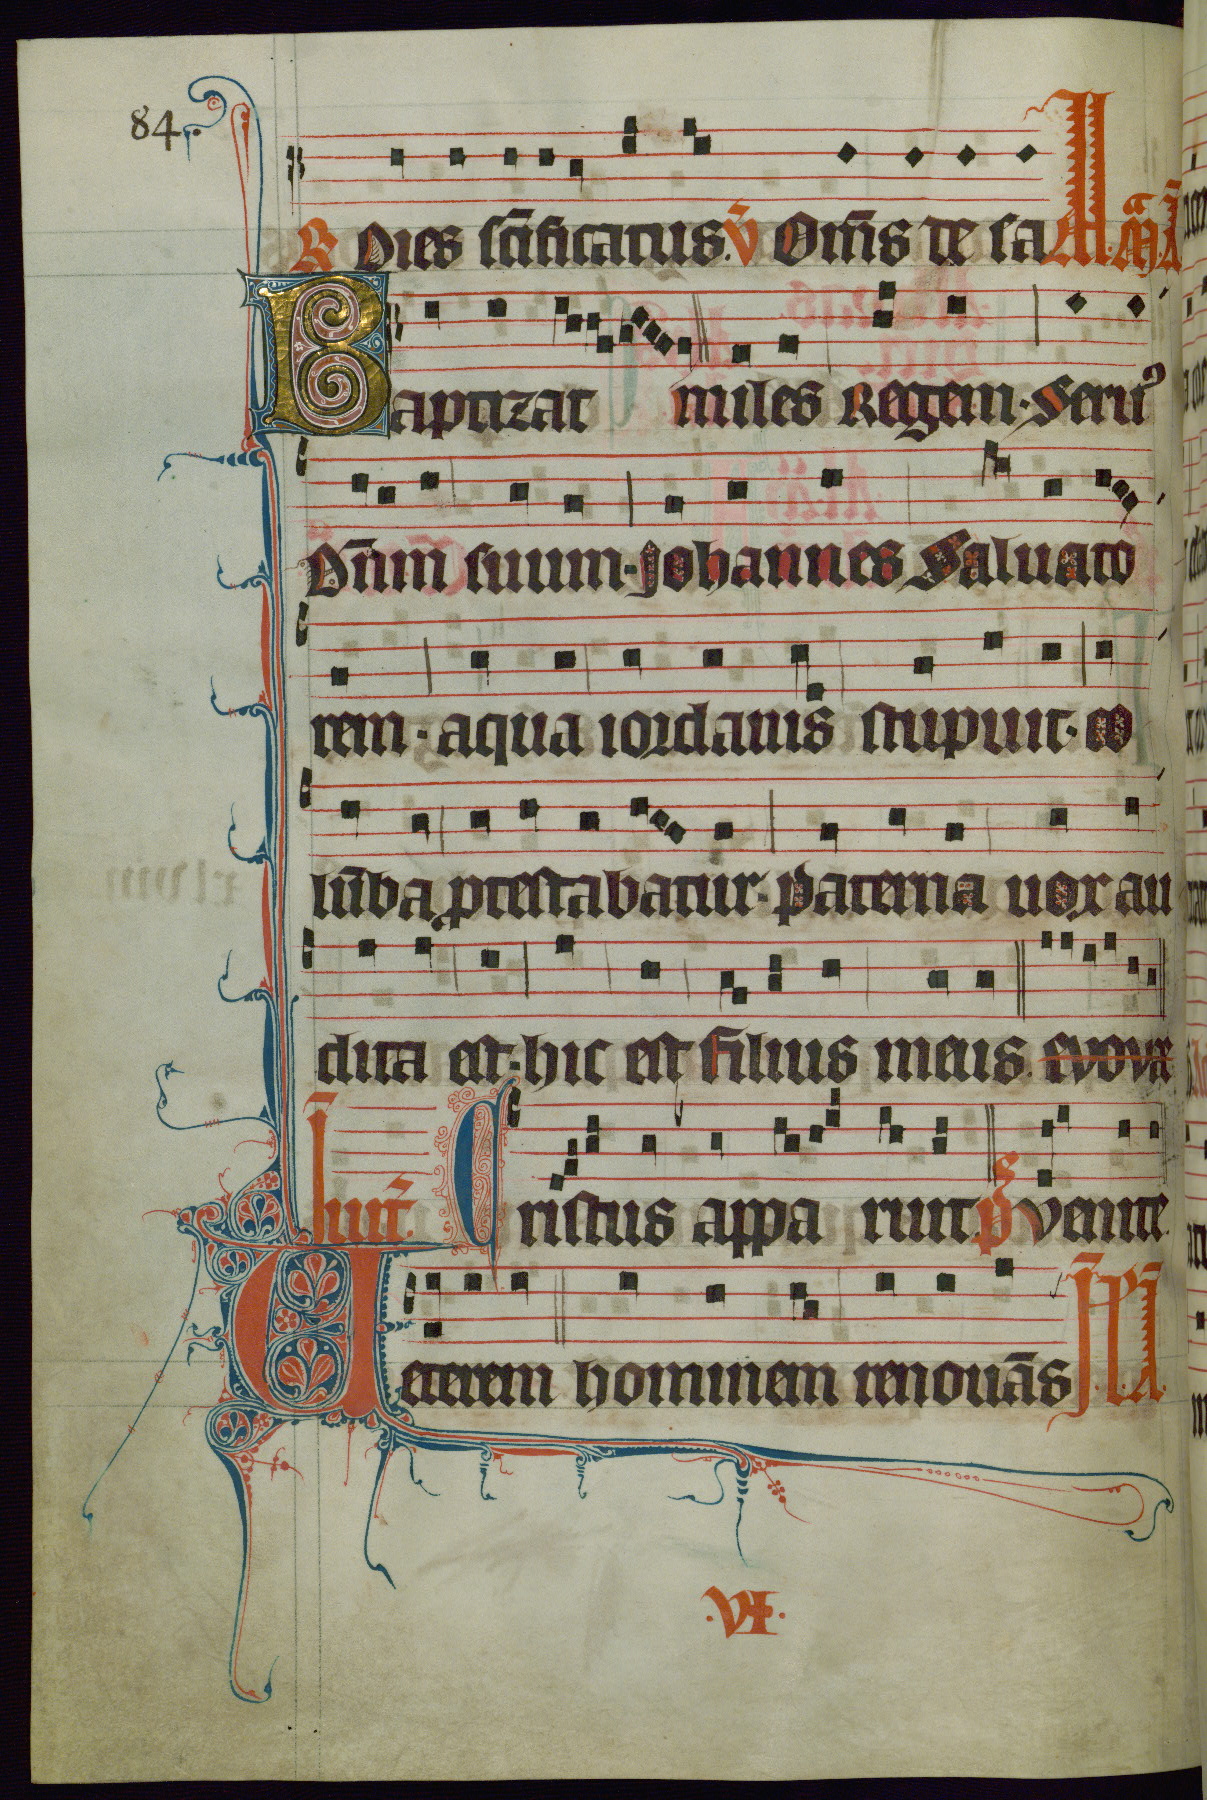 84.
R Dies scīficatus. v̄ Om̄s te sa Ad. m̄a. ā
Baptizat miles Regem. Seruꝰ
Dn̄m suum. Johannes Saluato
rem. aqua iordanis stupuit. co
lūba ꝓtestabatur. paterna uox au
dita est. hic est filius meus. EVOVÆ
Inuit. Cristus appa ruit. ps Venite.
Ueterem hominem renouās J. l. a.
.VI.